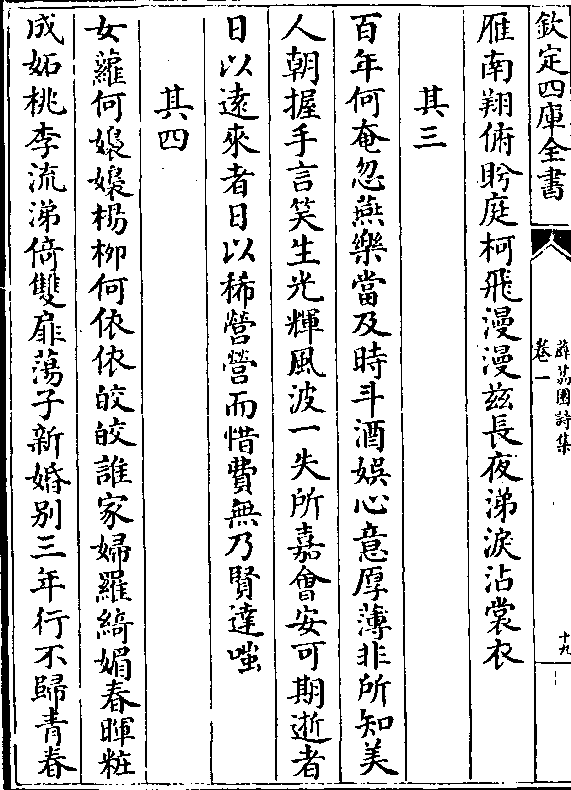 欽定四庫全書
薜荔園詩集
卷一
十九
雁南翔俯盻庭柯飛漫漫茲長夜涕淚沾裳衣
其三
百年何奄忽燕樂當及時斗酒娛心意厚薄非所知美
人朝握手言笑生光輝風波一失所嘉會安可期逝者
日以遠來者日以稀營營而惜費無乃賢達嗤
其四
女蘿何嫋嫋楊柳何依依皎皎誰家婦羅綺媚春暉粧
成妬桃李流涕倚雙扉蕩子新婚别三年行不歸青春